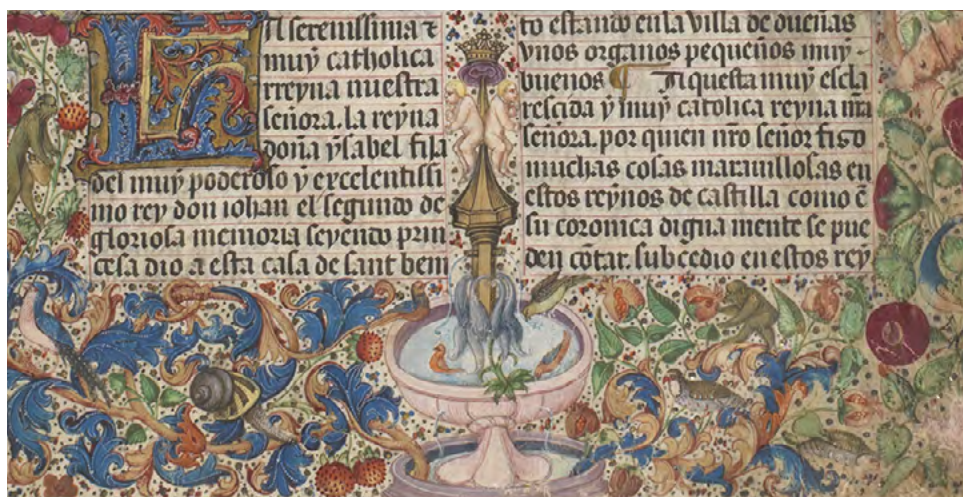 La serenissima ⁊
muy catholica
rreyna nuestra
señora. la reyna
doña ysabel fija
del muy poderoso y excelentissi
mo rey don iohan el segundo de
gloriosa memoria seyendo prin
cesa dio a esta casa de sant beni
to estando en la villa de dueñas
vnos organos pequeños muy
buenos ¶ Aquesta muy escla
resçida y muy catolica reyna nr̃a
señora. por quien nr̃o señor fizo
muchas cosas marauillosas en
estos reynos de castilla como ẽ
su coronica digna mente se pue
den cõtar. subcedio en estos rey